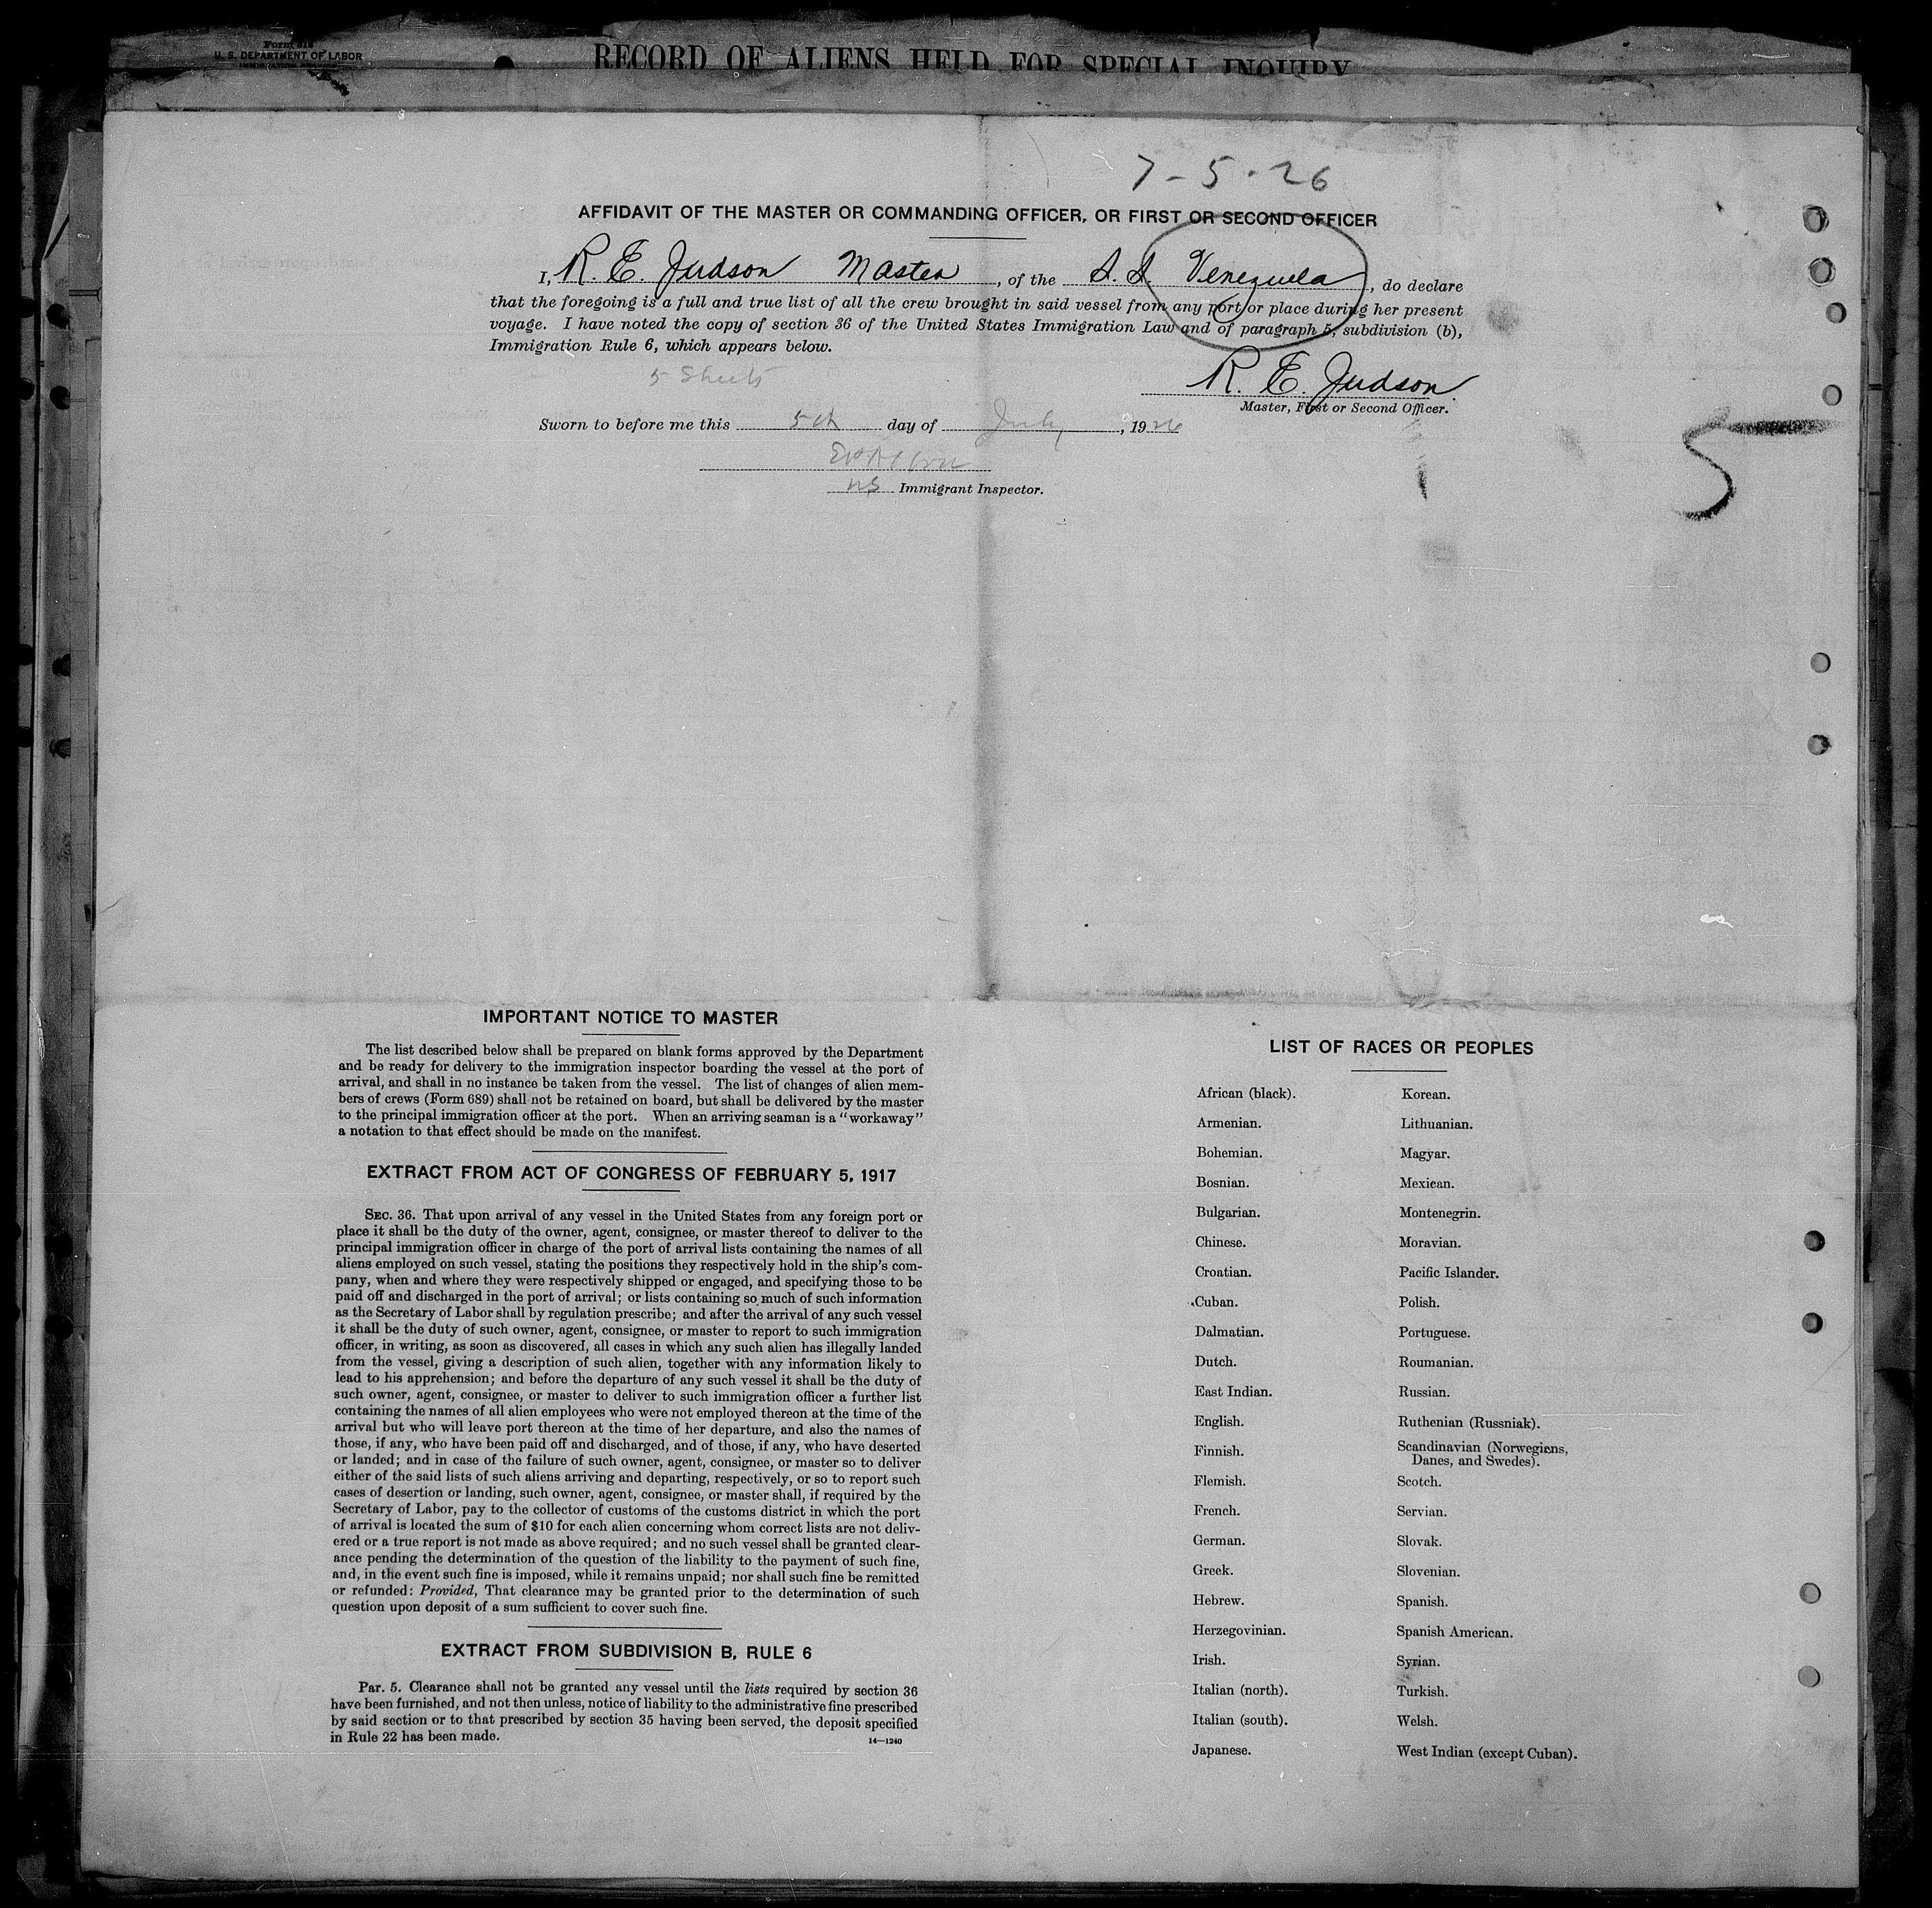 Form 618
U. S. DEPARTMENT OF LABOR
RECORD OF ALIENS HELD FOR SPECIAL INQUIRY
7-5-26
AFFIDAVIT OF THE MASTER OR COMMANDING OFFICER, OR FIRST OR SECOND OFFICER
I, R. E. Judson Master, of the S. S. Venezuela, do declare
that the foregoing is a full and true list of all the crew brought in said vessel from any port or place during her present
voyage. I have noted the copy of section 36 of the United States Immigration Law and of paragraph 5, subdivision (b),
Immigration Rule 6, which appears below.
5 Sheets
R. E. Judson
Master, First or Second Officer.
Sworn to before me this 5th day of July, 1926
5
Immigrant Inspector.
IMPORTANT NOTICE TO MASTER
The list described below shall be prepared on blank forms approved by the Department
and be ready for delivery to the immigration inspector boarding the vessel at the port of
arrival, and shall in no instance be taken from the vessel. The list of changes of alien mem-
bers of crews (Form 689) shall not be retained on board, but shall be delivered by the master
to the principal immigration officer at the port. When an arriving seaman is a "workaway"
a notation to that effect should be made on the manifest.
EXTRACT FROM ACT OF CONGRESS OF FEBRUARY 5, 1917
SEC. 36. That upon arrival of any vessel in the United States from any foreign port or
place it shall be the duty of the owner, agent, consignee, or master thereof to deliver to the
principal immigration officer in charge of the port of arrival lists containing the names of all
aliens employed on such vessel, stating the positions they respectively hold in the ship's com-
pany, when and where they were respectively shipped or engaged, and specifying those to be
paid off and discharged in the port of arrival; or lists containing so much of such information
as the Secretary of Labor shall by regulation prescribe; and after the arrival of any such vessel
it shall be the duty of such owner, agent, consignee, or master to report to such immigration
officer, in writing, as soon as discovered, all cases in which any such alien has illegally landed
from the vessel, giving a description of such alien, together with any information likely to
lead to his apprehension; and before the departure of any such vessel it shall be the duty of
such owner, agent, consignee, or master to deliver to such immigration officer a further list
containing the names of all alien employees who were not employed thereon at the time of the
arrival but who will leave port thereon at the time of her departure, and also the names of
those, if any, who have been paid off and discharged, and of those, if any, who have deserted
or landed; and in case of the failure of such owner, agent, consignee, or master so to deliver
either of the said lists of such aliens arriving and departing, respectively, or so to report such
cases of desertion or landing, such owner, agent, consignee, or master shall, if required by the
Secretary of Labor, pay to the collector of customs of the customs district in which the port
of arrival is located the sum of $10 for each alien concerning whom correct lists are not deliv-
ered or a true report is not made as above required; and no such vessel shall be granted clear-
ance pending the determination of the question of the liability to the payment of such fine,
and, in the event such fine is imposed, while it remains unpaid; nor shall such fine be remitted
or refunded: Provided, That clearance may be granted prior to the determination of such
question upon deposit of a sum sufficient to cover such fine.
EXTRACT FROM SUBDIVISION B, RULE 6
Par. 5. Clearance shall not be granted any vessel until the lists required by section 36
have been furnished, and not then unless, notice of liability to the administrative fine prescribed
by said section or to that prescribed by section 35 having been served, the deposit specified
in Rule 22 has been made.
14—1240
LIST OF RACES OR PEOPLES
African (black).
Armenian.
Bohemian.
Bosnian.
Bulgarian.
Chinese.
Croatian.
Cuban.
Dalmatian.
Dutch.
East Indian.
English.
Finnish.
Flemish.
French.
German.
Greek.
Hebrew.
Herzegovinian.
Irish.
Italian (north).
Italian (south).
Japanese.
Korean.
Lithuanian.
Magyar.
Mexican.
Montenegrin.
Moravian.
Pacific Islander.
Polish.
Portuguese.
Roumanian.
Russian.
Ruthenian (Russniak).
Scandinavian (Norwegians,
Danes, and Swedes).
Scotch.
Servian.
Slovak.
Slovenian.
Spanish.
Spanish American.
Syrian.
Turkish.
Welsh.
West Indian (except Cuban).